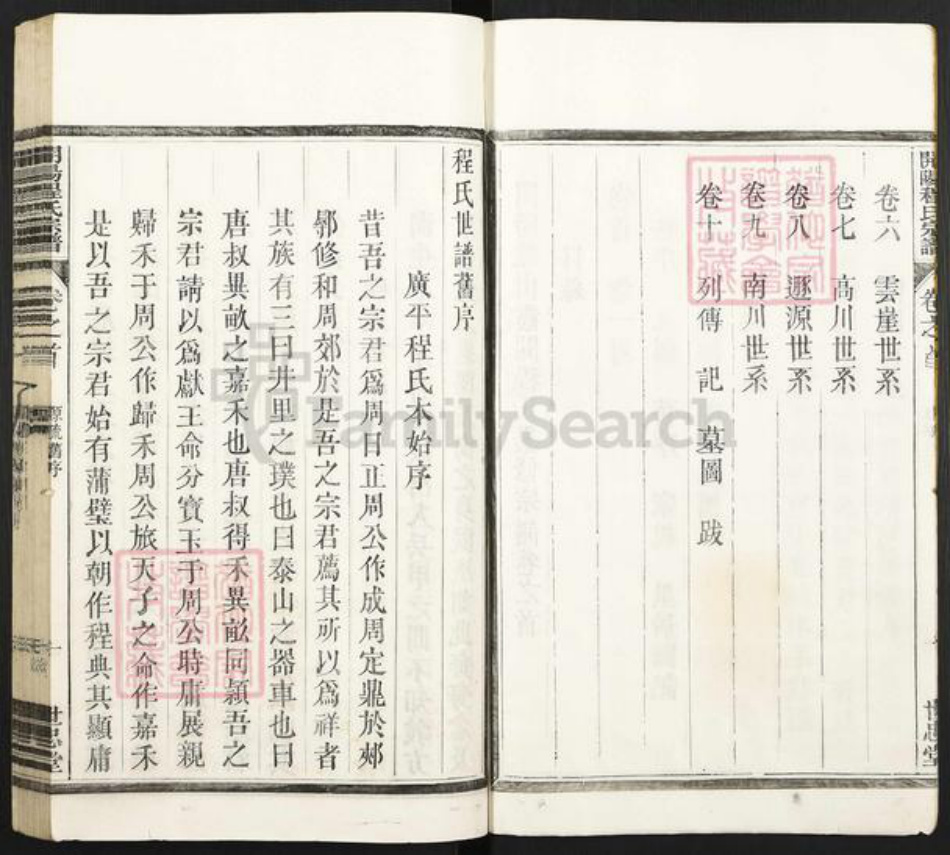 卷六 雲崖世系
卷七 高川世系
卷八 遯源世系
卷九 南川世系
卷十 列傳 記 墓圖 跋
程氏世譜舊序
廣平程氏本始序
昔吾之宗君爲周日正周公作成周定鼎於郟
鄏修和周郊於是吾之宗君薦其所以爲祥者
其族有三曰井里之璞也曰泰山之器車也曰
唐叔異畝之嘉禾也唐叔得禾異畝同穎吾之
宗君請以爲獻王命分寶玉于周公時庸展親
歸禾于周公作歸禾周公旅天子之命作嘉禾
是以吾之宗君始有蒲璧以朝作程典其顯庸
開陽程氏宗譜
卷之首
世思堂
源流舊序
世思堂
FamilySearch